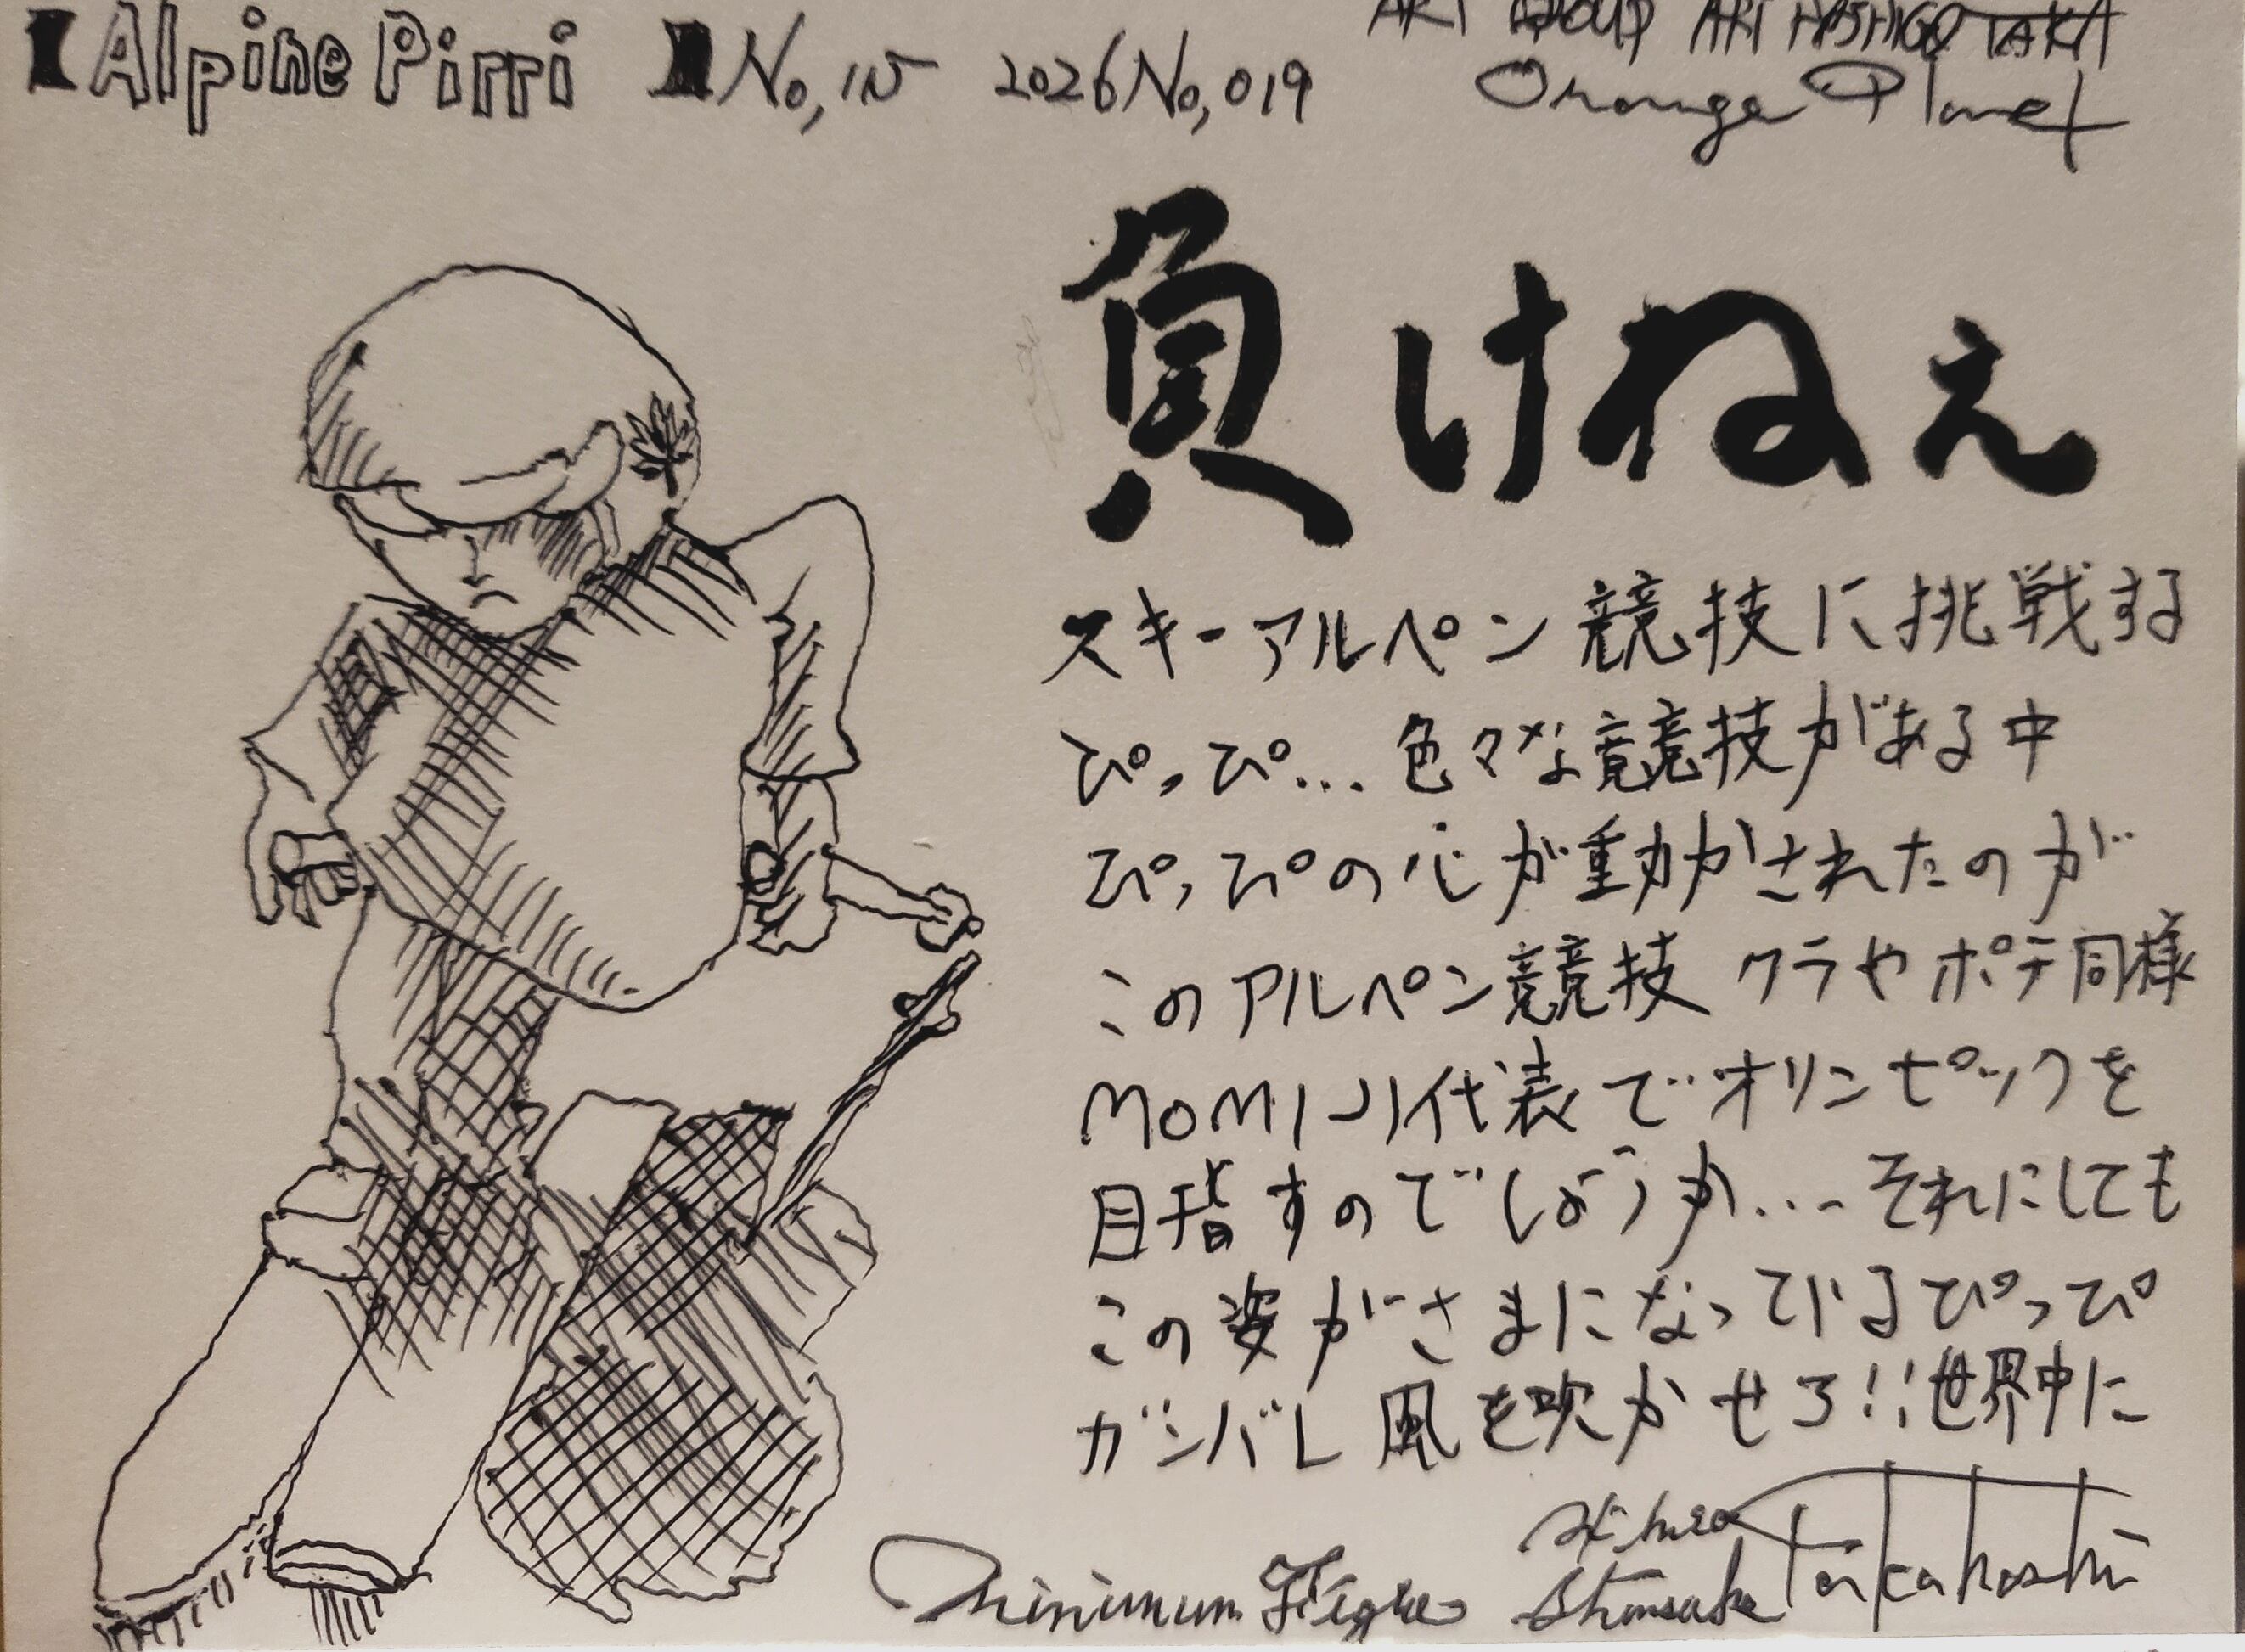 【Alpine Pirri】No,15 2026No,019
ART GROUP ART HASHIGOTAKA
Orange Planet
負けねぇ
スキーアルペン競技に挑戦する
ぴっぴ…色々な競技がある中
ぴっぴの心が動かされたのが
このアルペン競技 クラやポテ同様
MOMIJI代表でオリンピックを
目指すのでしょうか…それにしても
この姿がさまになっているぴっぴ
ガンバレ風を吹かせろ!!世界中に
Minimum Figure
Shunsuke Takahashi